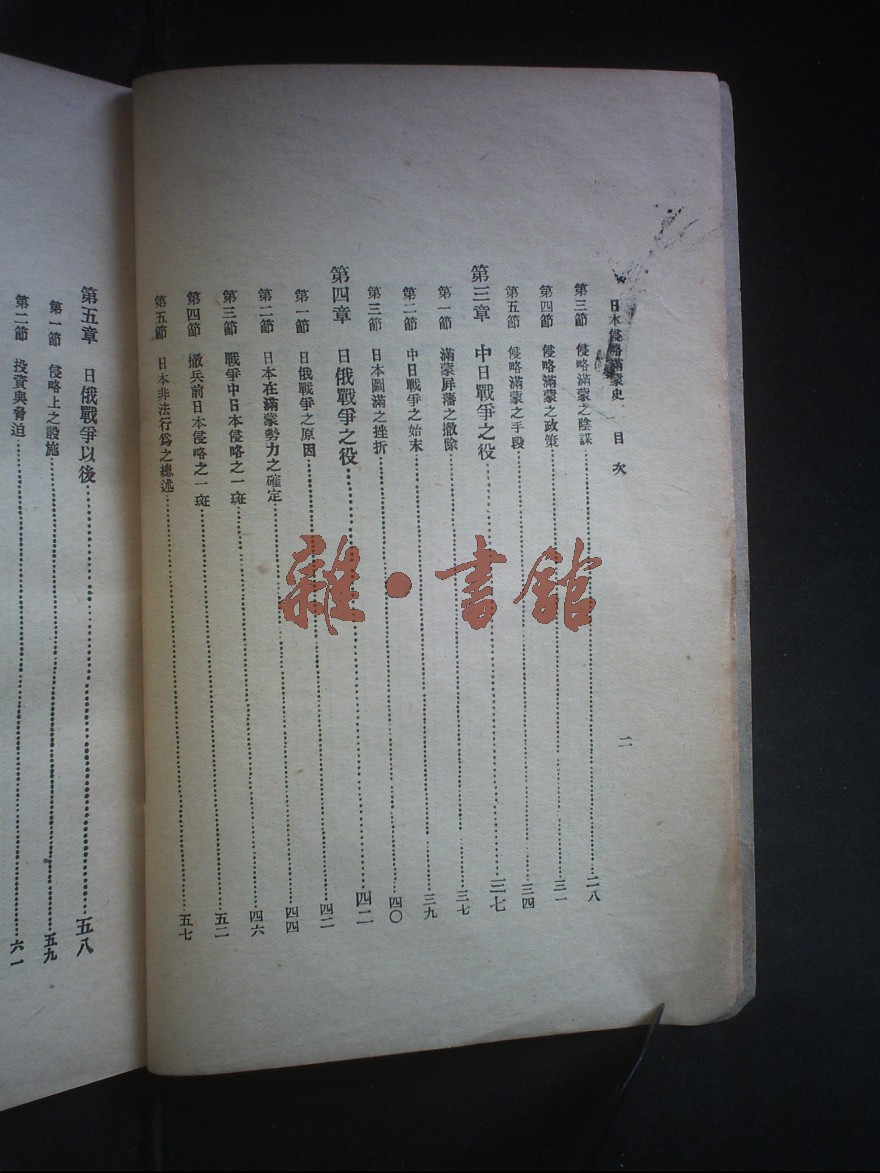 日本侵略滿蒙史 目次
二
第三節 侵略滿蒙之陰謀 二八
第四節 侵略滿蒙之政策 三一
第五節 侵略滿蒙之手段 三四
第三章 中日戰爭之役 三七
第一節 滿蒙屏藩之撤除 三七
第二節 中日戰爭之始末 三九
第三節 日本圖滿之挫折 四〇
第四章 日俄戰爭之役 四二
第一節 日俄戰爭之原因 四二
第二節 日本在滿蒙勢力之確定 四四
第三節 戰爭中日本侵略之一斑 四六
第四節 撤兵前日本侵略之一斑 五二
第五節 日本非法行爲之總述 五七
第五章 日俄戰爭以後 五八
第一節 侵略上之設施 五九
第二節 投資與脅迫 六一
雜·書館